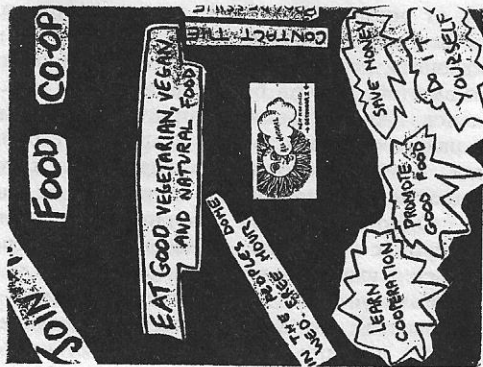 JOIN
FOOD CO-OP
EAT GOOD VEGETARIAN, VEGAN
AND NATURAL FOOD
CONTACT THE
IN THE PEOPLES DOME
WED. ENGE HOUR
LEARN
COOPERATION
PROMOTE
GOOD FOOD
SAVE MONEY
DO IT
YOURSELF